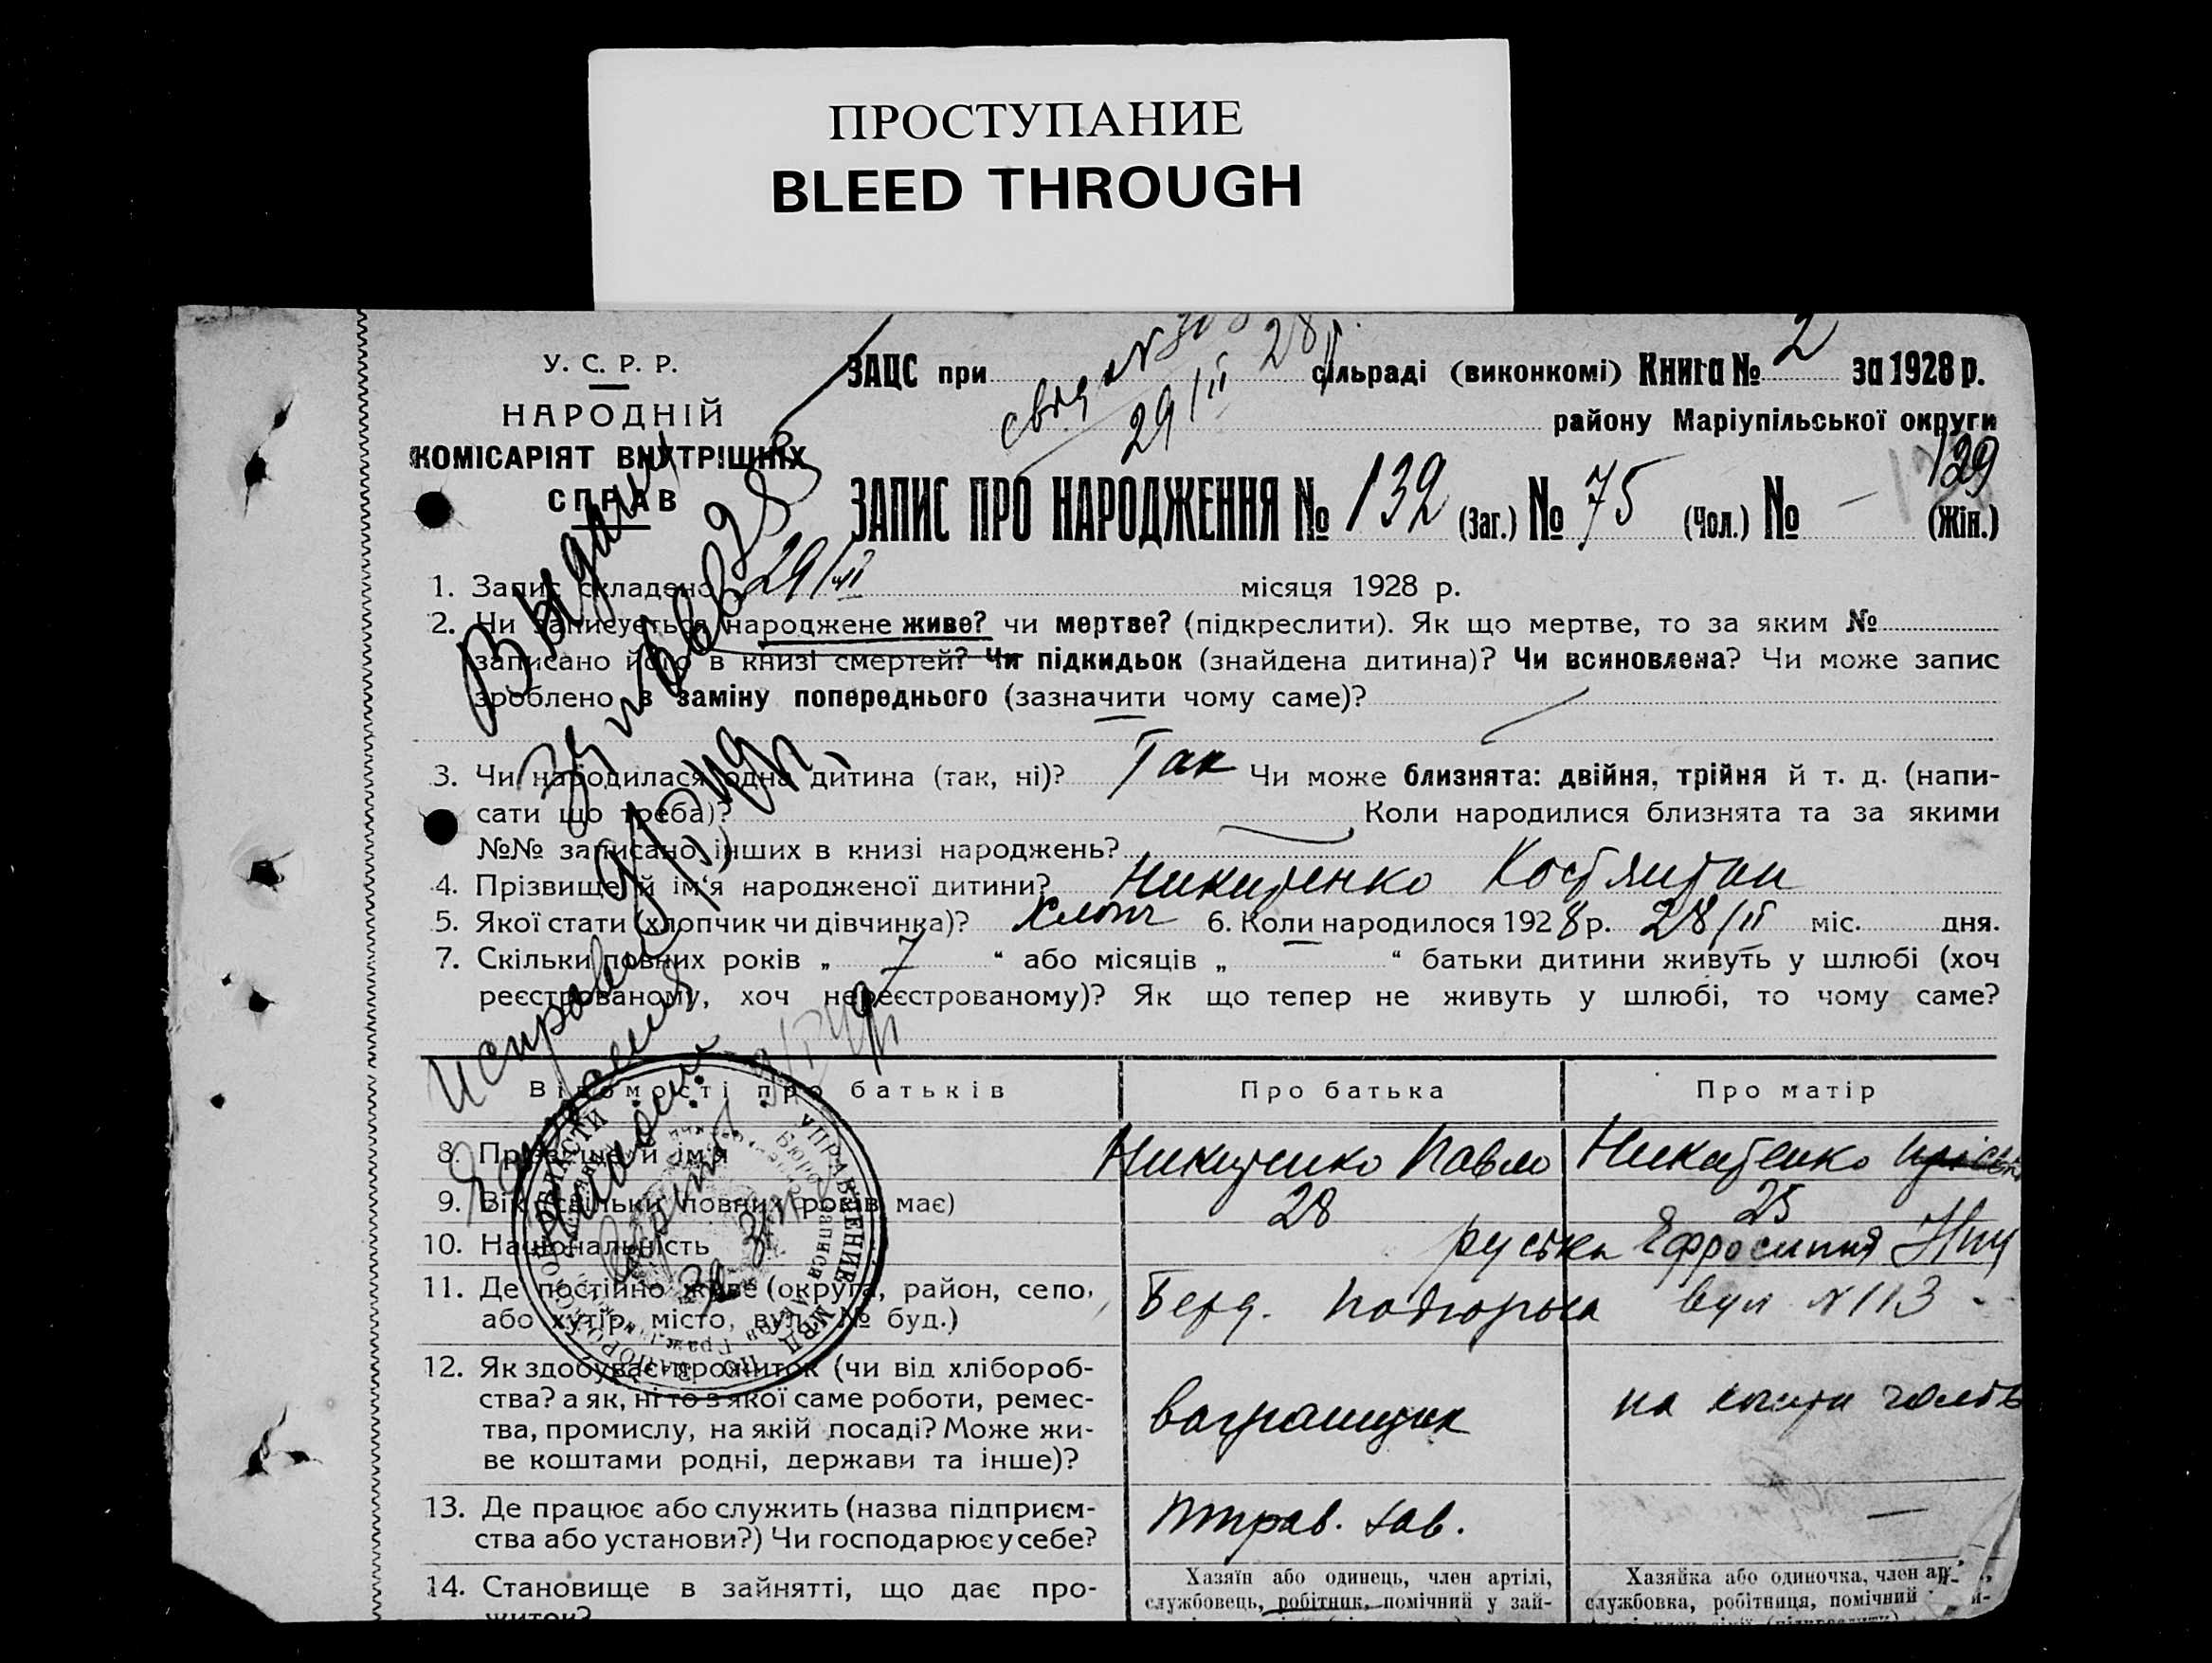 ПРОСТУПАНИЕ
BLEED THROUGH
У. С. Р. Р.
НАРОДНІЙ
КОМІСАРІЯТ ВНУТРІШНІХ
СПРАВ
ЗАЦС при сільраді (виконкомі) Книга № 2 за 1928 р.
29/ІІ 28 р.
району Маріупільської округи
129
ЗАПИС ПРО НАРОДЖЕННЯ № 132 (Заг.) № 75 (Чол.) № – (Жін.)
1. Запис складено 29/ІІ місяця 1928 р.
2. Чи записується народжене живе? чи мертве? (підкреслити). Як що мертве, то за яким №
записано його в книзі смертей? Чи підкидьок (знайдена дитина)? Чи всиновлена? Чи може запис
зроблено в заміну попереднього (зазначити чому саме)?
3. Чи народилася одна дитина (так, ні)? Так Чи може близнята: двійня, трійня й т. д. (напи-
сати що треба)? Коли народилися близнята та за якими
№№ записано інших в книзі народжень?
4. Прізвище й ім'я народженої дитини? Никитенко Костянтин
5. Якої статі (хлопчик чи дівчинка)? хлопч 6. Коли народилося 1928 р. 28/ІІ міс. дня.
7. Скільки повних років „ 7 “ або місяців „ – “ батьки дитини живуть у шлюбі (хоч
реєстрованому, хоч нереєстрованому)? Як що тепер не живуть у шлюбі, то чому саме?
Відомості про батьків Про батька Про матір
8. Прізвище й ім'я Никитенко Павло Никитенко
9. Вік (скільки повних років має) 28 25
10. Національність руська Ефросиния
11. Де постійно живе (округа, район, село, Берд. Подгорька вул №113
або хутір, місто, вул., № буд.)
12. Як здобуває прожиток (чи від хлібороб- вагранщик на
ства? а як, ні то з якої саме роботи, ремес-
тва, промислу, на якій посаді? Може жи-
ве коштами родні, держави та інше)?
13. Де працює або служить (назва підприєм- зав. —
ства або установи?) Чи господарює у себе?
14. Становище в зайнятті, що дає про- Хазяїн або одинець, член артілі, Хазяйка або одиночка, член
житок? службовець, робітник, помічний у зай- службовка, робітниця, помічний